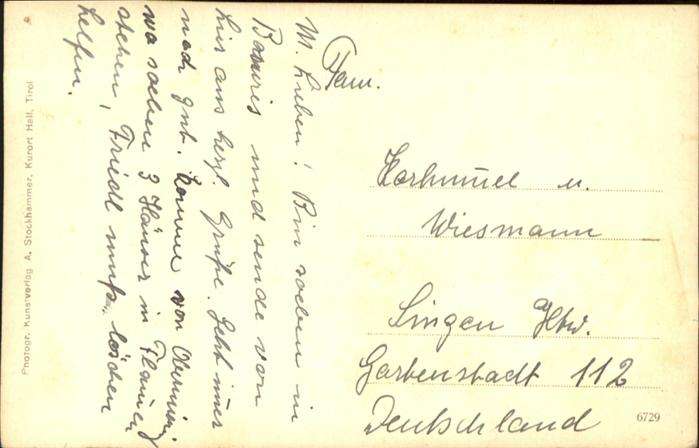 M. Lieben! Bin soeben in
und sende von
hier aus herzl. Grüße. Geht immer
noch gut. komme von
wo soeben 3 Häuser in Flammen
stehen, Friedl muß löschen
helfen.
Fam.
u.
Wiesmann
Singen a/Htw.
Gartenstadt 112
Deutschland
6729
Photogr. Kunstverlag A. Stockhammer, Kurort Hall, Tirol